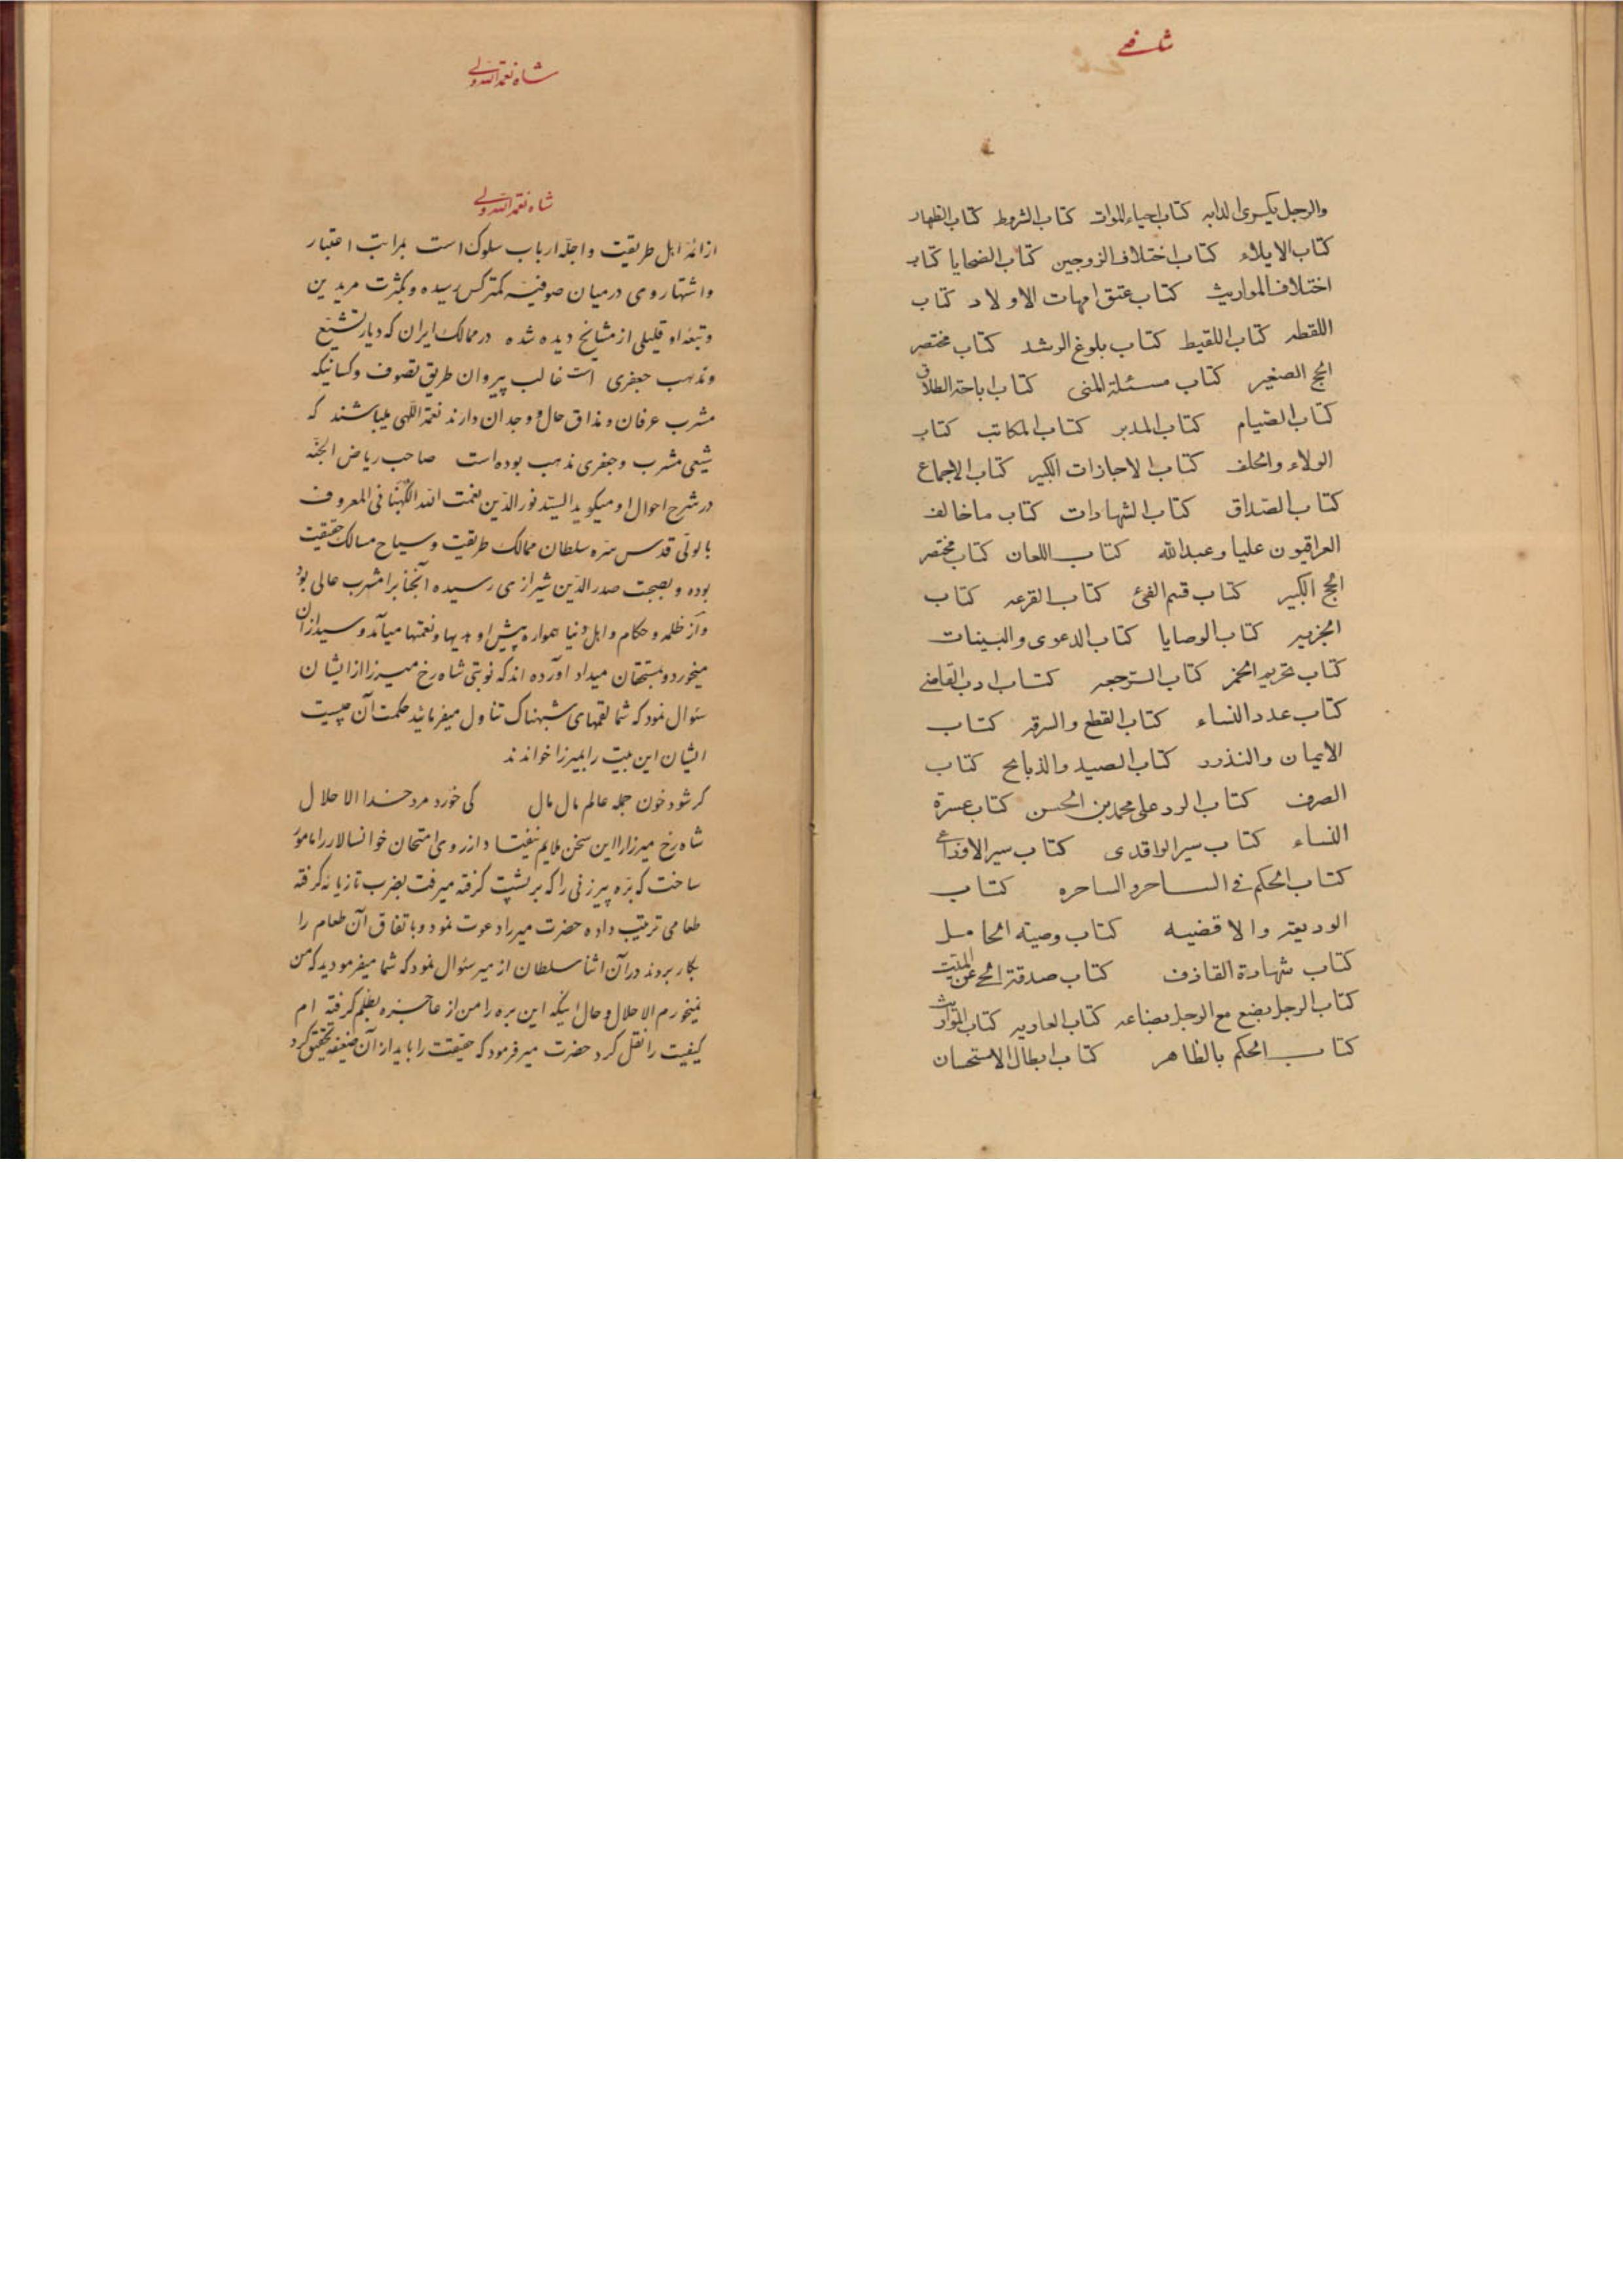 شافعی
والرجل یکری الدابه کتاب احیاء الموات کتاب الشروط کتاب الظهار
کتاب الایلاء کتاب اختلاف الزوجین کتاب الضحایا کتاب
اختلاف المواریث کتاب عتق امهات الاولاد کتاب
اللقطه کتاب اللقیط کتاب بلوغ الرشد کتاب مختصر
الحج الصغیر کتاب مسئلة المنی کتاب اباحة الطلاق
کتاب الصیام کتاب المدبر کتاب المکاتب کتاب
الولاء والحلف کتاب الاجازات الکبیر کتاب الاجماع
کتاب الصداق کتاب الشهادات کتاب ما خالف
العراقیون علیا وعبدالله کتاب اللعان کتاب مختصر
الحج الکبیر کتاب قسم الفئ کتاب القرعه کتاب
الجزیه کتاب الوصایا کتاب الدعوی والبینات
کتاب تحریم الخمر کتاب الترجعه کتاب ادب القاضی
کتاب عدد النساء کتاب القطع والسرقه کتاب
الایمان والنذور کتاب الصید والذبایح کتاب
الصرف کتاب الرد علی محمد بن الحسن کتاب عسرة
النساء کتاب سیر الواقدی کتاب سیر الاوزاعی
کتاب الحکم فی الساحر والساحره کتاب
الودیعه والاقضیه کتاب وصیة الحامل
کتاب شهادة القاذف کتاب صدقة الحی عن المیت
کتاب الرجل یضع مع الرجل بضاعه کتاب العاریه کتاب المواریث
کتاب الحکم بالظاهر کتاب ابطال الاستحسان
شاه نعمة الله ولی
شاه نعمة الله ولی
از ائمهٔ اهل طریقت و اجلّه ارباب سلوک است بمراتب اعتبار
و اشتهار وی در میان صوفیه کمتر کس رسیده و بکثرت مریدین
و تبعهٔ او قلیلی از مشایخ دیده شده در ممالک ایران که دیار تشیّع
و مذهب جعفری است غالب پیروان طریق تصوف و کسانیکه
مشرب عرفان و مذاق حال و وجدان دارند نعمة اللّهی میباشند که
شیعی مشرب و جعفری مذهب بوده است صاحب ریاض الجنّه
در شرح احوال او میگوید السیّد نور الدّین نعمت الله الکهبنانی المعروف
بالولّی قدس سرّه سلطان ممالک طریقت و سیاح مسالک حقیقت
بوده و بصحبت صدر الدّین شیرازی رسیده آنجناب را مشرب عالی بود
و از ظلمه و حکام و اهل دنیا همواره پیش او هدیها و نعمتها میآمد و سید از آن
میخورد و بمستحقان میداد آورده اند که نوبتی شاه رخ میرزا از ایشان
سئوال نمود که شما لقمهای شبهناک تناول میفرمائید حکمت آن چیست
ایشان این بیت را بمیرزا خواندند
گر شود خون جمله عالم مال مال کی خورد مرد خدا الا حلال
شاه رخ میرزا را این سخن ملایم نیفتاد و از روی امتحان خوانسالار را مامور
ساخت که برّه پیرزنی را که بر پشت گرفته میرفت بضرب تازیانه گرفته
طعامی ترتیب داده حضرت میر را دعوت نمود و باتفاق آن طعام را
بکار بردند در آن اثنا سلطان از میر سئوال نمود که شما میفرمودید که من
نمیخورم الا حلال و حال اینکه این بره را من از عاجزه بظلم گرفته ام
کیفیت را نقل کرد حضرت میر فرمود که حقیقت را باید از آن ضعیفه تحقیق کرد